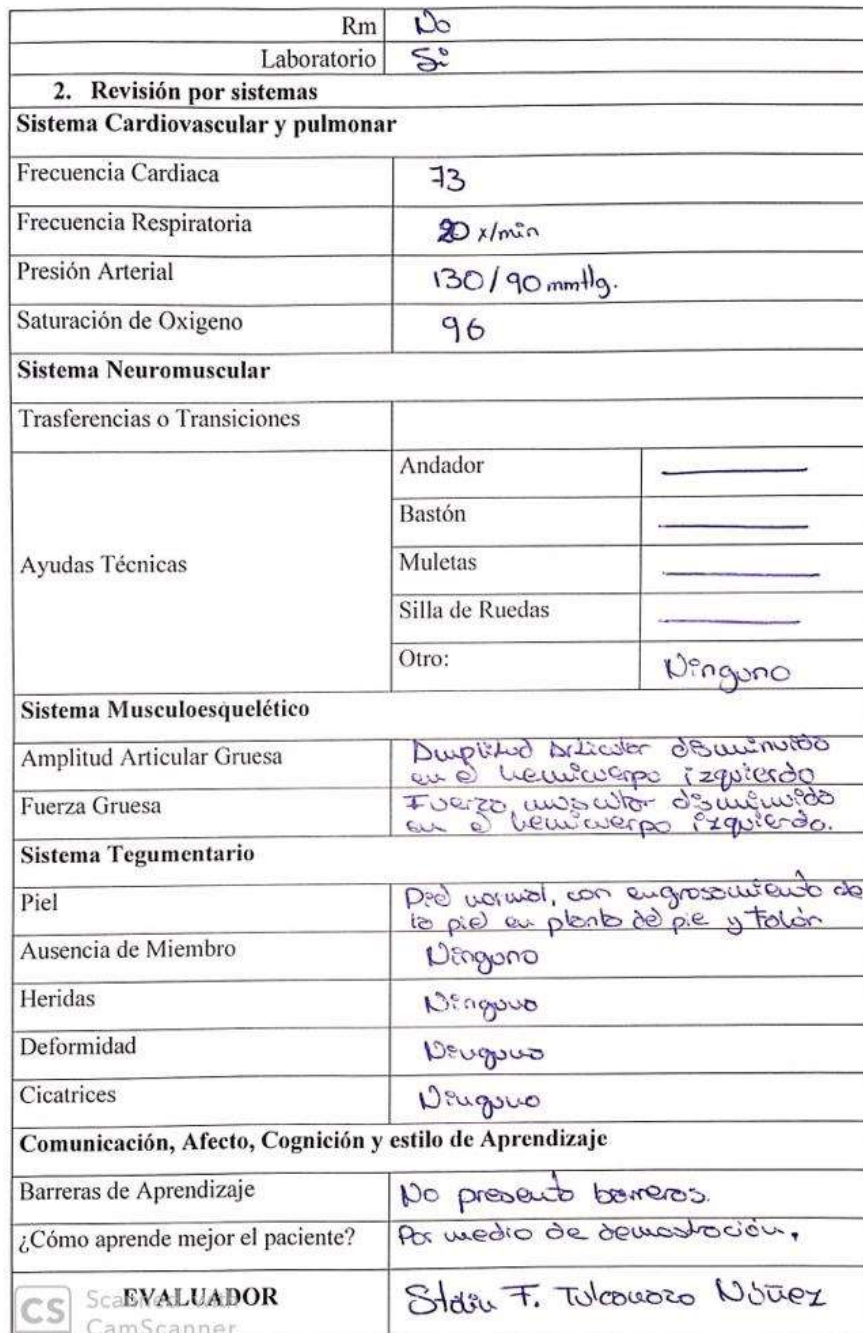 Rm No
Laboratorio Si
2. Revisión por sistemas
Sistema Cardiovascular y pulmonar
Frecuencia Cardiaca 73
Frecuencia Respiratoria 20 x/min
Presión Arterial 130/90 mmHg.
Saturación de Oxigeno 96
Sistema Neuromuscular
Trasferencias o Transiciones
Ayudas Técnicas
Andador
Bastón
Muletas
Silla de Ruedas
Otro: Ninguno
Sistema Musculoesquelético
Amplitud Articular Gruesa
Amplitud Articular disminuido
en el hemicuerpo izquierdo
Fuerza Gruesa
Fuerza muscular disminuido
en el hemicuerpo izquierdo.
Sistema Tegumentario
Piel
Piel normal, con engrosamiento de
la piel en planta del pie y Talón
Ausencia de Miembro Ninguno
Heridas Ninguno
Deformidad Ninguno
Cicatrices Ninguno
Comunicación, Afecto, Cognición y estilo de Aprendizaje
Barreras de Aprendizaje No presenta barreras.
¿Cómo aprende mejor el paciente? Por medio de demostración.
EVALUADOR F. Núñez
CS Scanned with
CamScanner